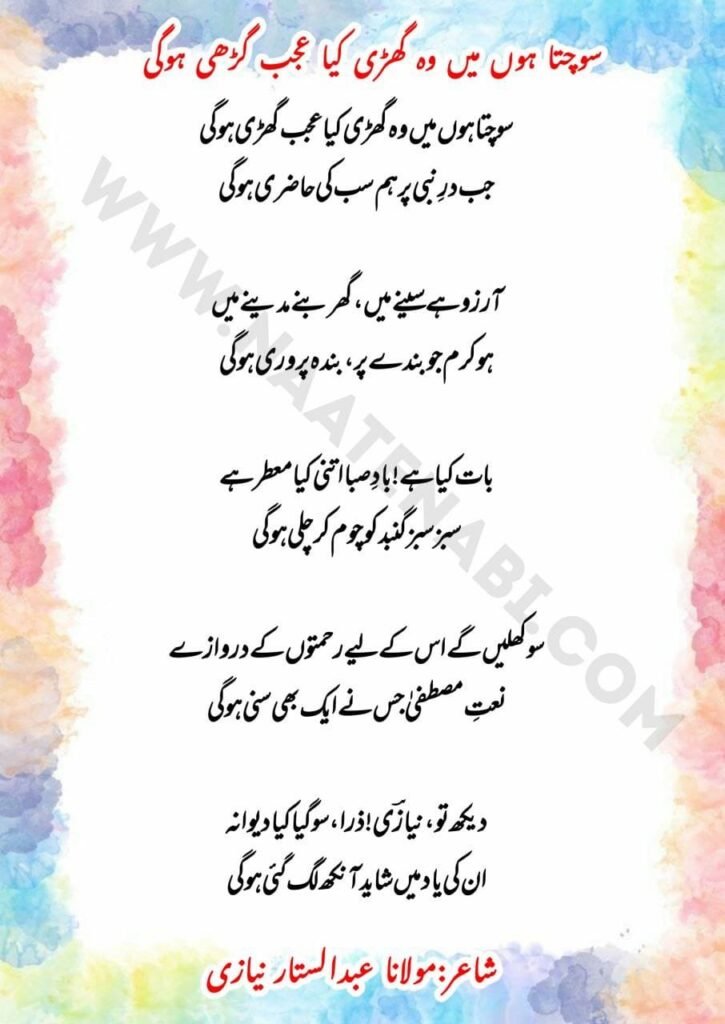 سوچتا ہوں میں وہ گھڑی کیا عجب گڑھی ہوگی
سوچتا ہوں میں وہ گھڑی کیا عجب گھڑی ہوگی
جب درِ نبی پر ہم سب کی حاضری ہوگی
آرزو ہے سینے میں، گھر بنے مدینے میں
ہو کرم جو بندے پر، بندہ پروری ہوگی
بات کیا ہے! بادِ صبا اتنی کیا معطر ہے
سبز سبز گنبد کو چوم کر چلی ہوگی
سو کھلیں گے اس کے لیے رحمتوں کے دروازے
نعتِ مصطفیٰ جس نے ایک بھی سنی ہوگی
دیکھ تو، نیازؔی! ذرا، سو گیا کیا دیوانہ
ان کی یاد میں شاید آنکھ لگ گئی ہوگی
شاعر:مولانا عبدالستار نیازی
WWW.NAATENABI.COM